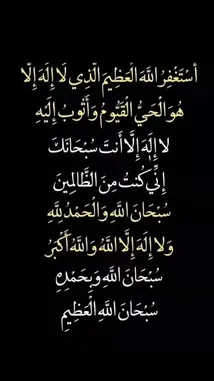 أَسْتَغْفِرُ اللَّهَ الْعَظِيمَ الَّذِي لَا إِلَهَ إِلَّا
هُوَ الْحَيُّ الْقَيُّومُ وَأَتُوبُ إِلَيْهِ
لا إِلَهَ إِلَّا أَنتَ سُبْحَانَكَ
إِنِّي كُنتُ مِنَ الظَّالِمِينَ
سُبْحَانَ اللَّهِ وَالْحَمْدُ لِلَّهِ
وَلَا إِلَهَ إِلَّا اللَّهُ وَاللَّهُ أَكْبَرُ
سُبْحَانَ اللَّهِ وَبِحَمْدِهِ
سُبْحَانَ اللَّهِ الْعَظِيمِ